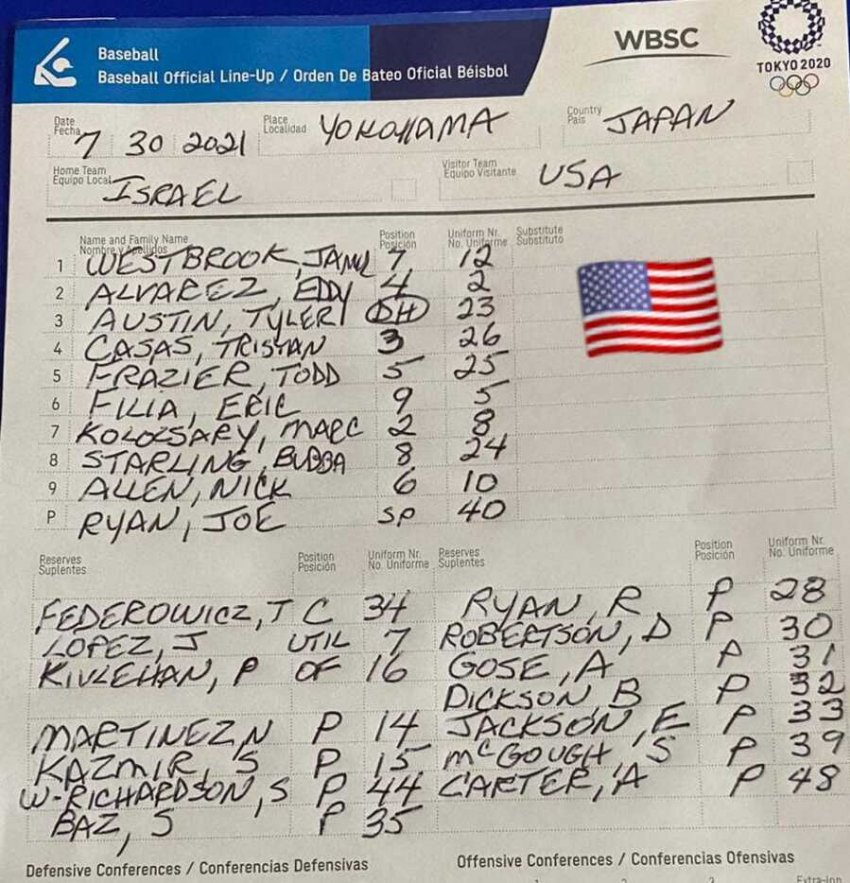 Baseball
WBSC
Baseball Official Line-Up / Orden De Bateo Oficial Béisbol
TOKYO 2020
Date
Fecha 7 30 2021
Place
Localidad YOKOHAMA
Country
País JAPAN
Home Team
Equipo Local ISRAEL
Visitor Team
Equipo Visitante USA
Name and Family Name Position Uniform Nr. Substitute
Nombre y Apellidos Posición No. Uniforme Substituto
1 WESTBROOK, JAMIE 7 12
2 ALVAREZ, EDDY 4 2
3 AUSTIN, TYLER DH 23
4 CASAS, TRISTAN 3 26
5 FRAZIER, TODD 5 25
6 FILIA, ERIC 9 5
7 KOLOZSARY, MARC 2 8
8 STARLING, BUBBA 8 24
9 ALLEN, NICK 6 10
P RYAN, JOE SP 40
Reserves Position Uniform Nr. Reserves Position Uniform Nr.
Suplentes Posición No. Uniforme Suplentes Posición No. Uniforme
FEDEROWICZ, T C 34 RYAN, R P 28
LOPEZ, J UTIL 7 ROBERTSON, D P 30
KIVLEHAN, P OF 16 GOSE, A P 31
DICKSON, B P 32
MARTINEZ N P 14 JACKSON, E P 33
KAZMIR, S P 15 McGOUGH, S P 39
W-RICHARDSON, S P 44 CARTER, A P 48
BAZ, S P 35
Defensive Conferences / Conferencias Defensivas
Offensive Conferences / Conferencias Ofensivas